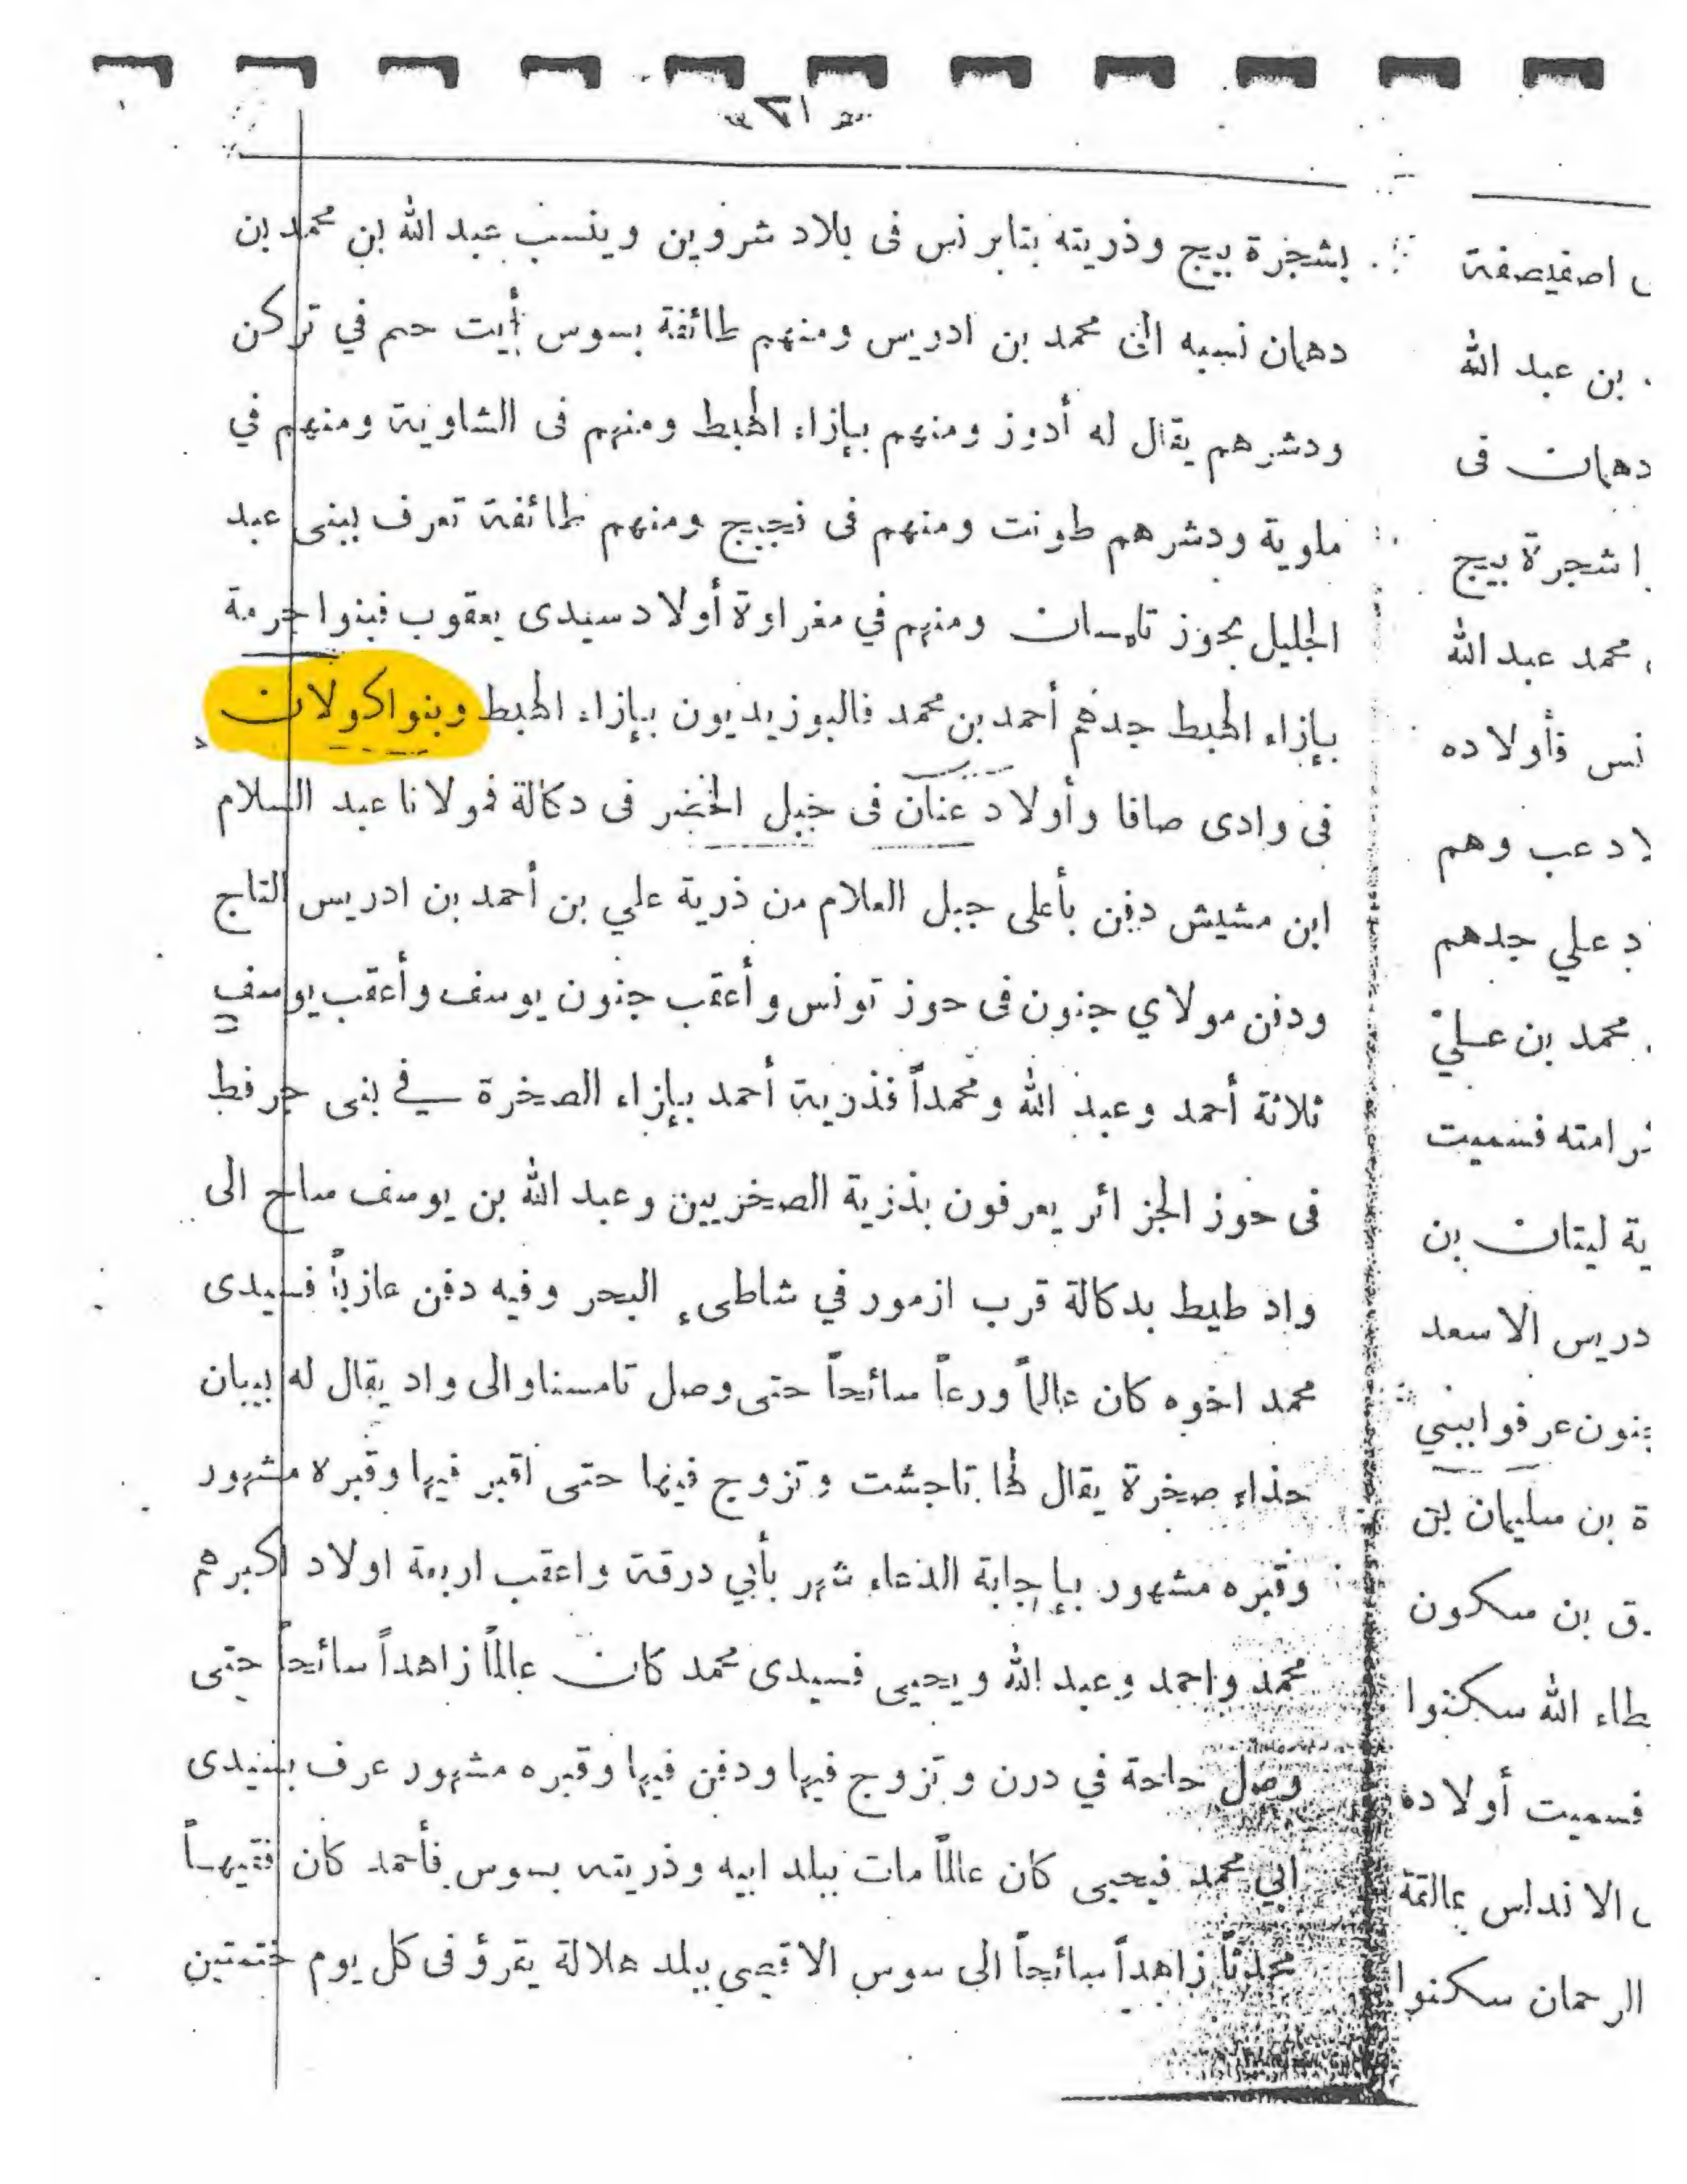 ١٢١
بشجرة بيج وذريته بتابرنس فى بلاد شروين وينسب عبد الله بن محمد بن
دهمان نسبه الى محمد بن ادريس ومنهم طائفة بسوس أيت حم في تركن
ودشرهم يقال له أدوز ومنهم بإزاء الهبط ومنهم فى الشاوية ومنهم في
ملوية ودشرهم طونت ومنهم فى نجيج ومنهم طائفة تعرف ببنى عبد
الجليل بحوز تلمسان ومنهم في مغراوة أولاد سيدى يعقوب فبنوا حرمة
بإزاء الهبط جدهم أحمد بن محمد فالبوزيديون بإزاء الهبط وبنوا كولان
فى وادى صافا وأولاد عنان فى جبل الخضر فى دكالة فمولانا عبد السلام
ابن مشيش دفن بأعلى جبل العلام من ذرية علي بن أحمد بن ادريس التاج
ودفن مولاي جنون فى حوز تونس وأعقب جنون يوسف وأعقب يوسف
ثلاثة أحمد وعبد الله ومحمداً فذرية أحمد بإزاء الصخرة في بنى جرفط
فى حوز الجزائر يعرفون بذرية الصخريين وعبد الله بن يوسف ساح الى
واد طيط بدكالة قرب ازمور في شاطىء البحر وفيه دفن عازباً فسيدى
محمد اخوه كان عالماً ورعاً سائحاً حتى وصل تامسنا والى واد يقال له بيبان
حذاء صخرة يقال لها تاجشت وتزوج فيها حتى اقبر فيها وقبره مشهور
وقبره مشهور بإجابة الدعاء شهر بأبي درقة واعقب اربعة اولاد اكبرهم
محمد واحمد وعبد الله ويحيى فسيدى محمد كان عالماً زاهداً سائحاً حتى
وصل حاحة في درن وتزوج فيها ودفن فيها وقبره مشهور عرف بسيدى
ابي محمد فيحيى كان عالماً مات ببلد ابيه وذريته بسوس فأحمد كان فقيهاً
محدثاً زاهداً سائحاً الى سوس الاقصى ببلد هلالة يقرؤ فى كل يوم ختمتين
اصفيصفة
بن عبد الله
دهمان فى
شجرة بيج
محمد عبد الله
نس فأولاده
لاد عب وهم
د علي جدهم
محمد بن علي
رامته فسميت
ية ليتان بن
دريس الاسعد
جنون عرفوا ببني
ة بن سليمان بن
ق بن سكون
طاء الله سكنوا
فسميت أولاده
الاندلس عالقة
الرحمان سكنوا